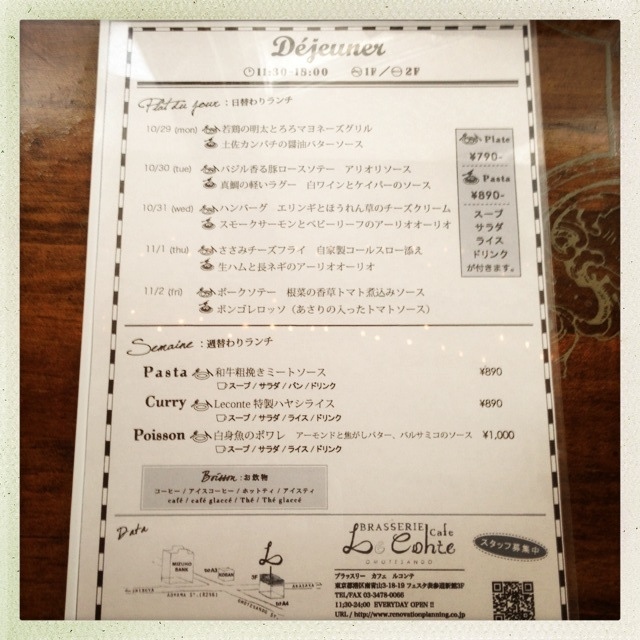 Déjeuner
11:30-15:00 1F/2F
Plat du jour：日替わりランチ
10/29 (mon) 若鶏の明太とろろマヨネーズグリル
土佐カンパチの醤油バターソース
10/30 (tue) バジル香る豚ロースソテー アリオリソース
真鯛の軽いラグー 白ワインとケイパーのソース
10/31 (wed) ハンバーグ エリンギとほうれん草のチーズクリーム
スモークサーモンとベビーリーフのアーリオオーリオ
11/1 (thu) ささみチーズフライ 自家製コールスロー添え
生ハムと長ネギのアーリオオーリオ
11/2 (fri) ポークソテー 根菜の香草トマト煮込みソース
ボンゴレロッソ（あさりの入ったトマトソース）
Plate
¥790-
Pasta
¥890-
スープ
サラダ
ライス
ドリンク
が付きます。
Semaine：週替わりランチ
Pasta 和牛粗挽きミートソース ¥890
スープ / サラダ / パン / ドリンク
Curry Leconte 特製ハヤシライス ¥890
スープ / サラダ / ライス / ドリンク
Poisson 白身魚のポワレ アーモンドと焦がしバター、バルサミコのソース ¥1,000
スープ / サラダ / ライス / ドリンク
Boisson：お飲物
コーヒー / アイスコーヒー / ホットティ / アイスティ
café / café glaccé / Thé / Thé glaccé
Data
MIZUHO BANK
KOBAN
AOYAMA ST.(R246)
BRASSERIE Cafe
Le Conte
OMOTESANDO
スタッフ募集中
ブラッスリー カフェ ルコンテ
東京都港区南青山3-18-19 フェスタ表参道新館3F
TEL/FAX 03-3478-0066
11:30-24:00 EVERYDAY OPEN !!
URL / http://www.renovationplanning.co.jp